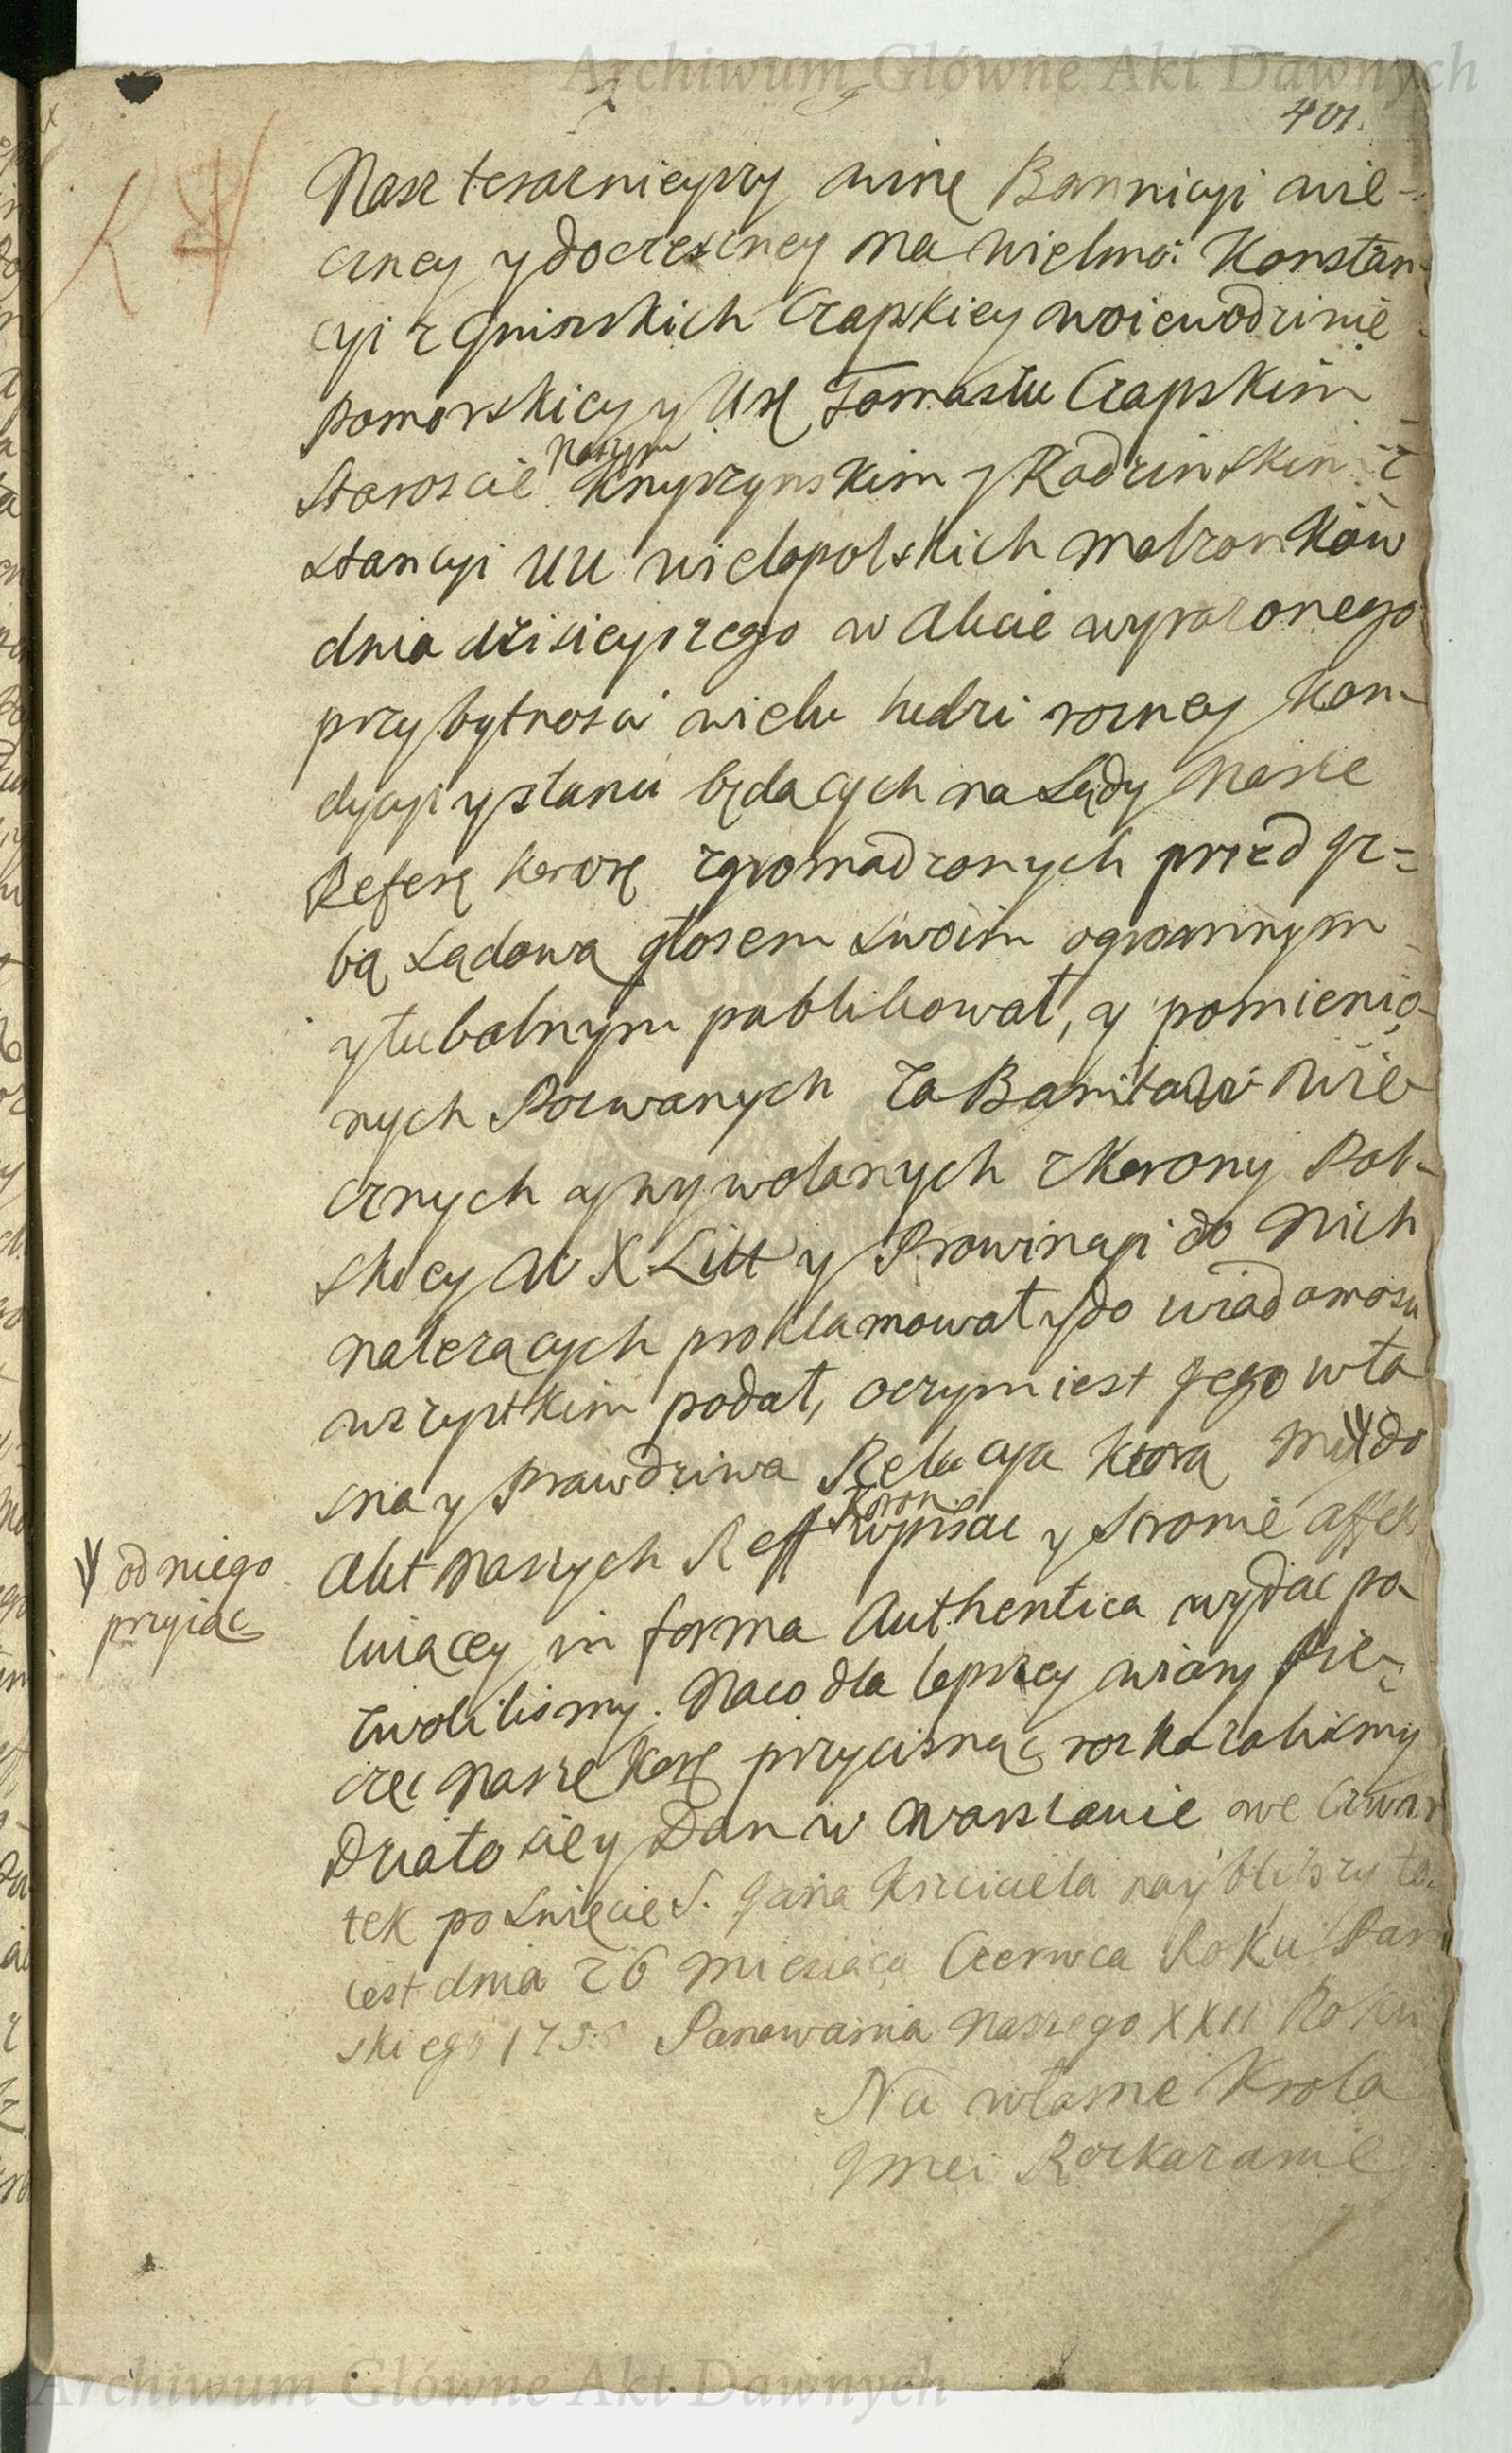 Archiwum Główne Akt Dawnych
401.
Nasz teraznieyszy winę Bannicyi wie-
czney y doczesney na Wielmoż Konstan-
cyi z Gninskich Czapskiey woiewodzinie
pomorskiey y Ur. Tomaszu Czapskim
Staroscie Naszym Knyszynskim y Radzinskim z
Stancyi UU Wielopolskich Małzonków
dnia dzisieyszego w Akcie wyrazonego
przy bytnosci wielu ludzi rozney kon-
dycyi y stanu będących na Sądy Nasze
Referę Koronę zgromadzonych przed Jz-
bą Sądową głosem swoim ogromnym
y tubalnym publikował, y pomienio-
nych Pozwanych za Banitów Wie-
cznych y wywołanych z Korony Pol-
skiey W X Litt y Prowincyi do Nich
nalezących proklamował y do wiadomosci
wszystkim podał, o czym iest Jego wła
sna y Prawdziwa Relacya ktorą My do
od niego
przyiąc
Akt Naszych Reff Koron wpisac y Stronie affek
tuiącey in forma Authentica wydac po
zwolilismy. Na co dla lepszey wiary Pie-
częc Nasze Korę przycisnąc roskazalismy
Działo się y Dan w Warszawie we Czwar
tek po Swięcie S. Jana Krzciciela nayblizszy to
iest dnia 26 Miesiąca Czerwca Roku Pan
skiego 175 Panowania Naszego XXII Roku
Na własne Krola
Jmci Rozkazanie
Archiwum Główne Akt Dawnych